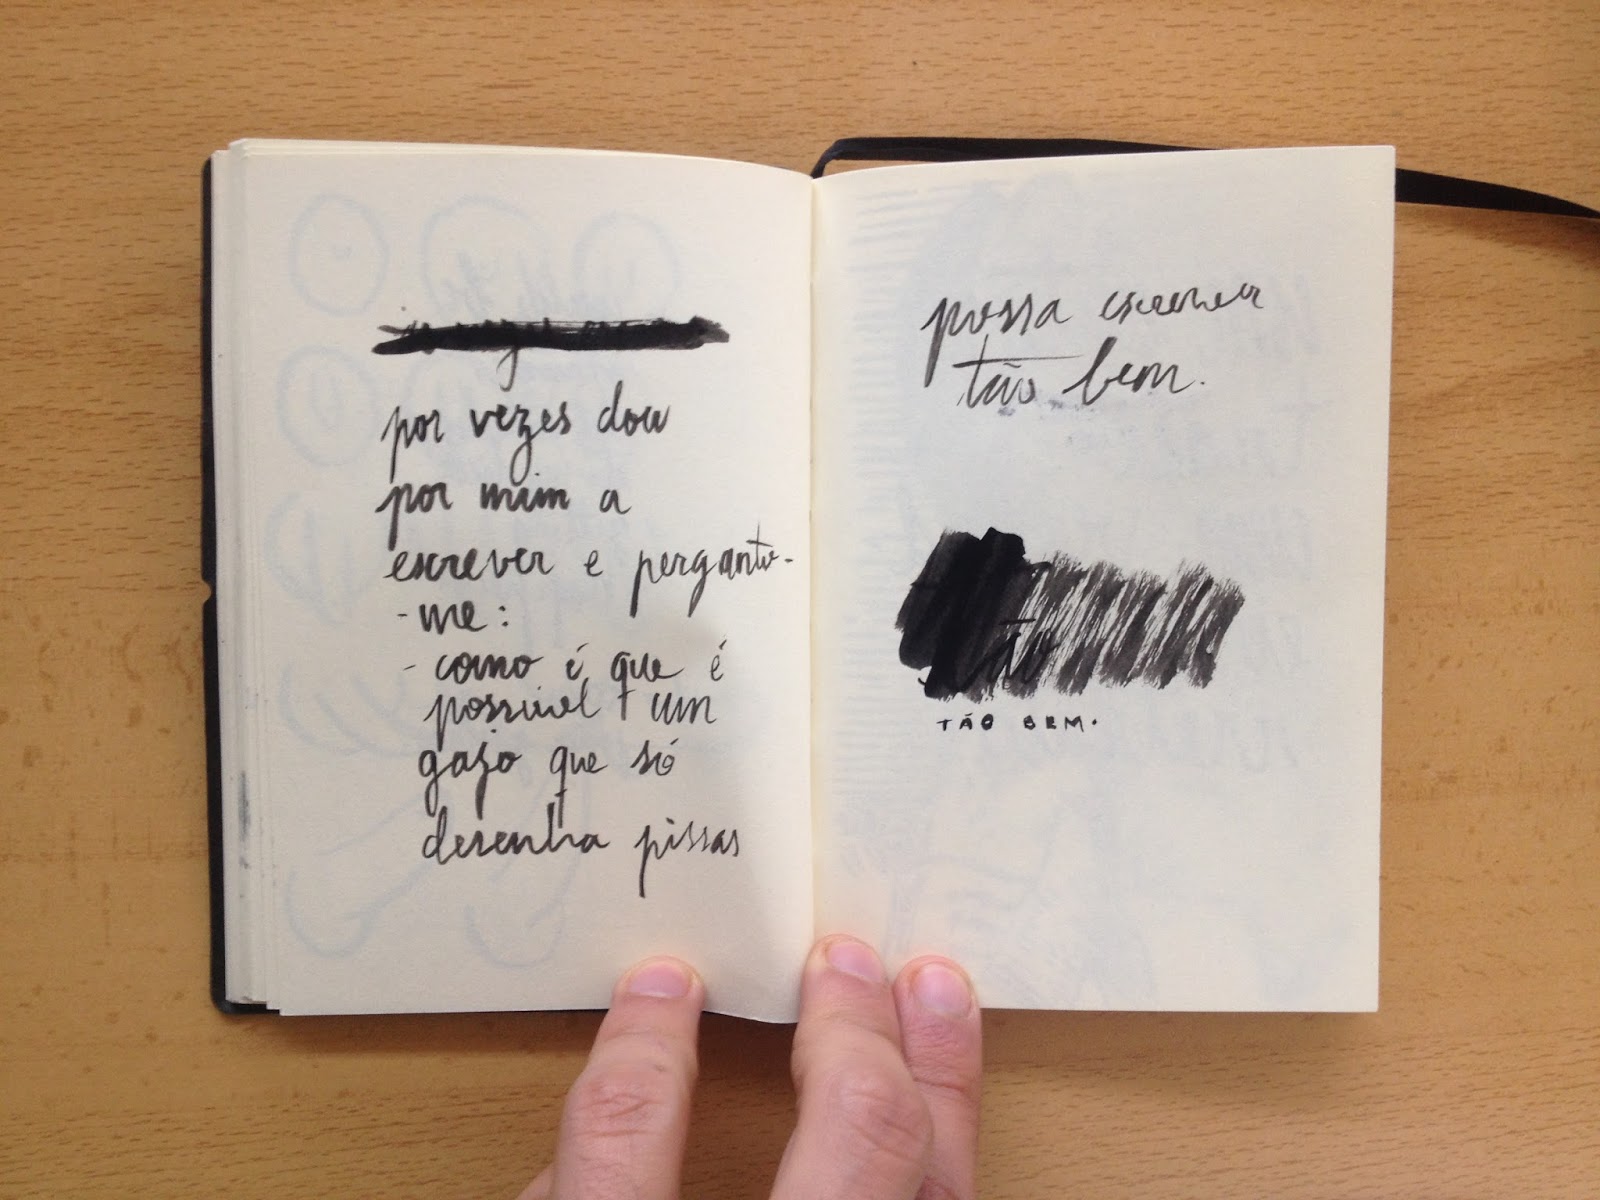 por vezes dou
por mim a
escrever e pergunto-
-me:
- como é que é
possivel um
gajo que só
desenha pissas
possa escrever
tão bem.
tão
TÃO BEM.